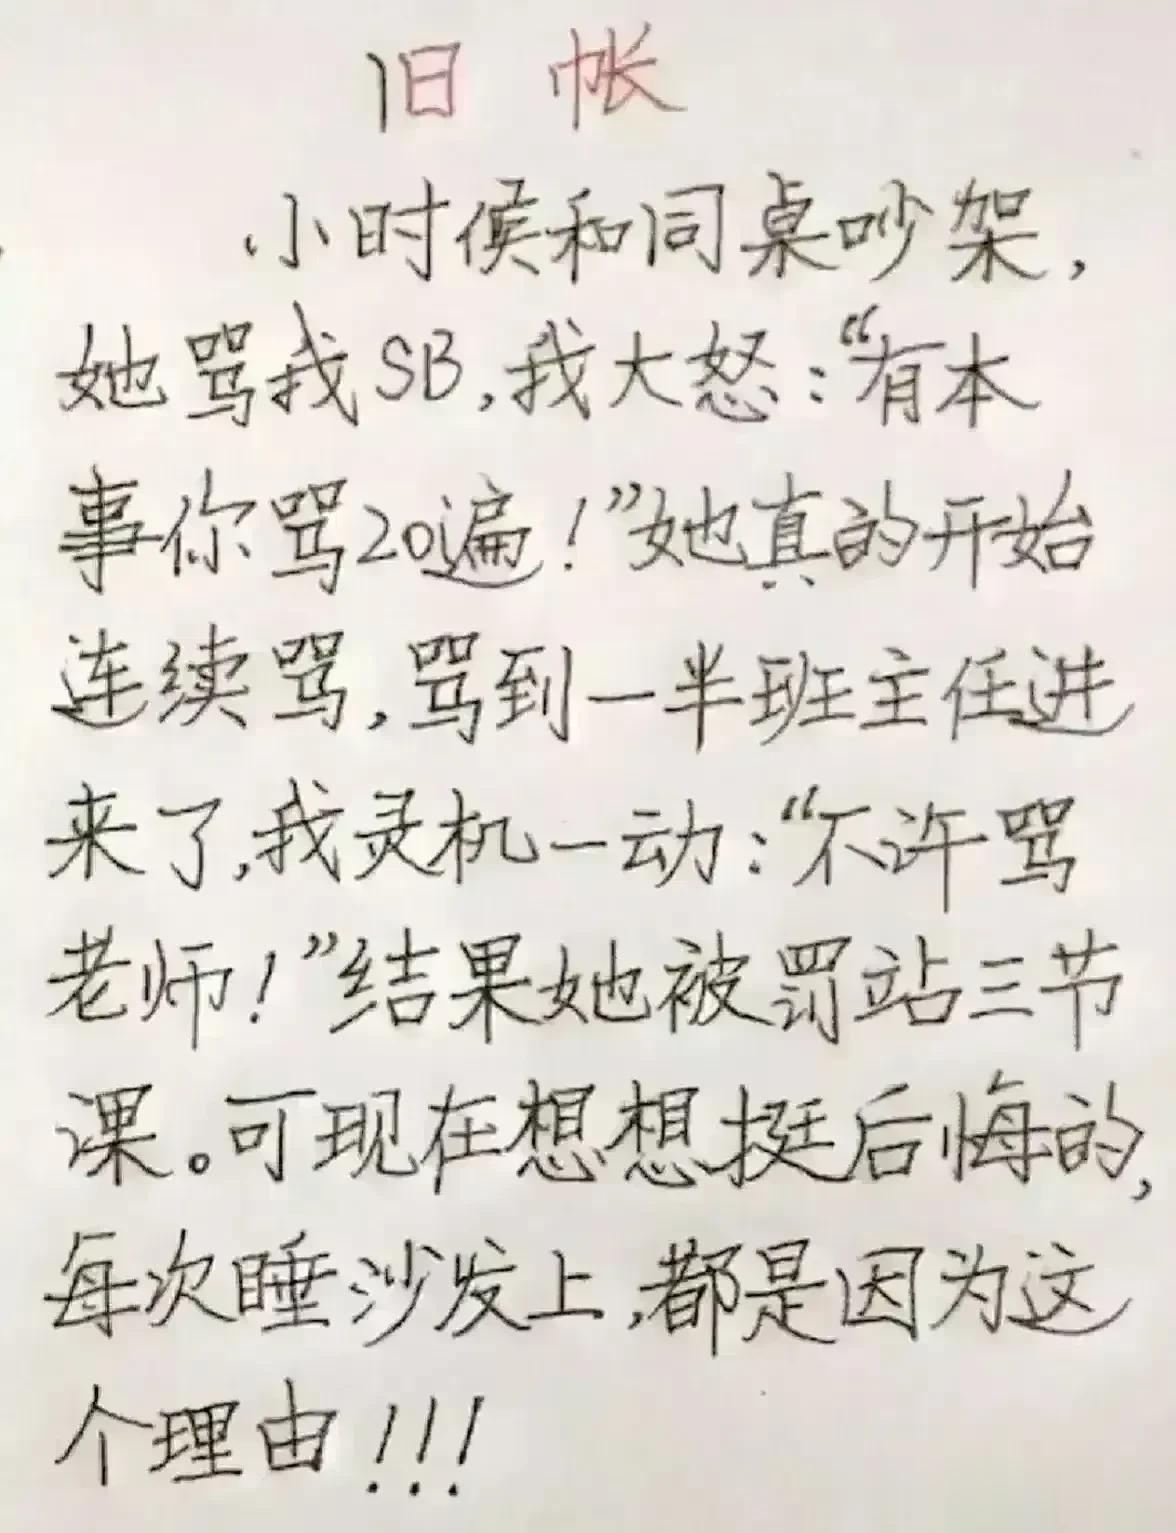 旧帐
小时候和同桌吵架，
她骂我SB，我大怒：“有本
事你骂20遍！”她真的开始
连续骂，骂到一半班主任进
来了，我灵机一动：“不许骂
老师！”结果她被罚站三节
课。可现在想想挺后悔的，
每次睡沙发上，都是因为这
个理由！！！